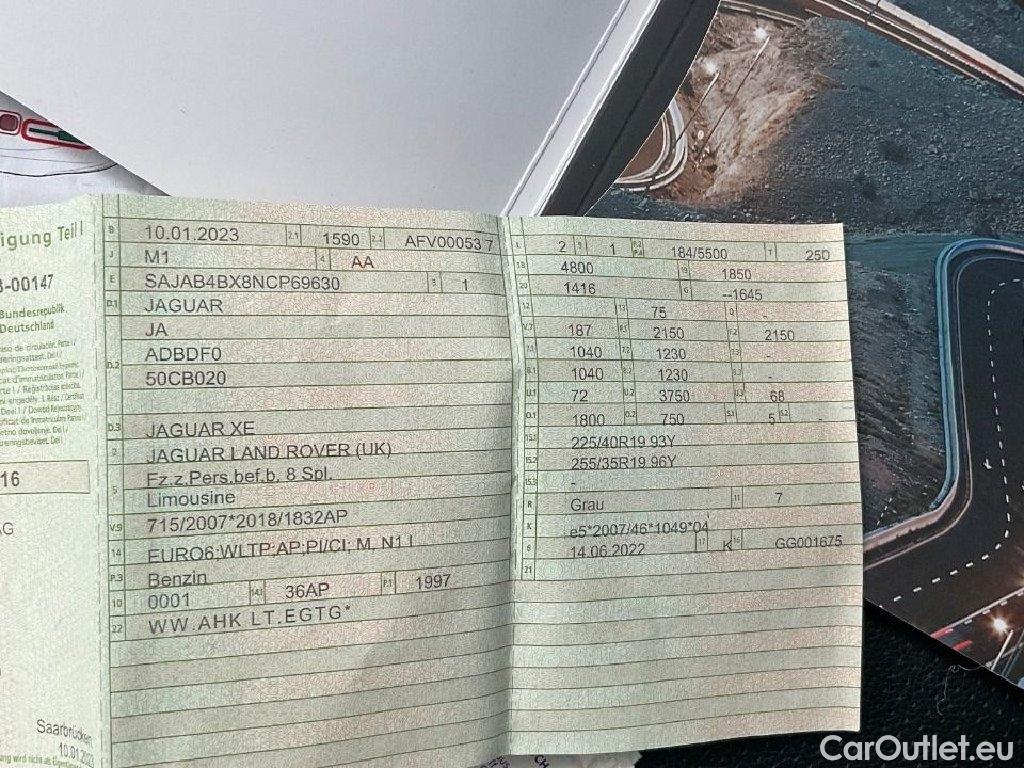 igung Teil I
-00147
Bundesrepublik
Deutschland
16
AG
Saarbrücken
10.01.2023
B 10.01.2023 2.1 1590 2.2 AFV00053 7
J M1 4 AA
E SAJAB4BX8NCP69630 3 1
D.1 JAGUAR
JA
D.2 ADBDF0
50CB020
D.3 JAGUAR XE
2 JAGUAR LAND ROVER (UK)
5 Fz.z.Pers.bef.b. 8 Spl.
Limousine
V.9 715/2007*2018/1832AP
14 EURO6;WLTP;AP;PI/CI; M, N1 I
P.3 Benzin
10 0001 14.1 36AP P.1 1997
22 WW.AHK LT.EGTG*
L 2 9 1 P.2 P.4 184/5500 T 250
18 4800 19 1850
20 1416 G --1645
12 - 13 75 Q -
V.7 187 F.1 2150 F.2 2150
7.1 1040 7.2 1230 7.3 -
8.1 1040 8.2 1230 8.3 -
U.1 72 U.2 3750 U.3 68
O.1 1800 O.2 750 S.1 5 S.2
15.1 225/40R19 93Y
15.2 255/35R19 96Y
15.3 -
R Grau 11 7
K e5*2007/46*1049*04
6 14.06.2022 17 K 16 GG001675
21
CarOutlet.eu